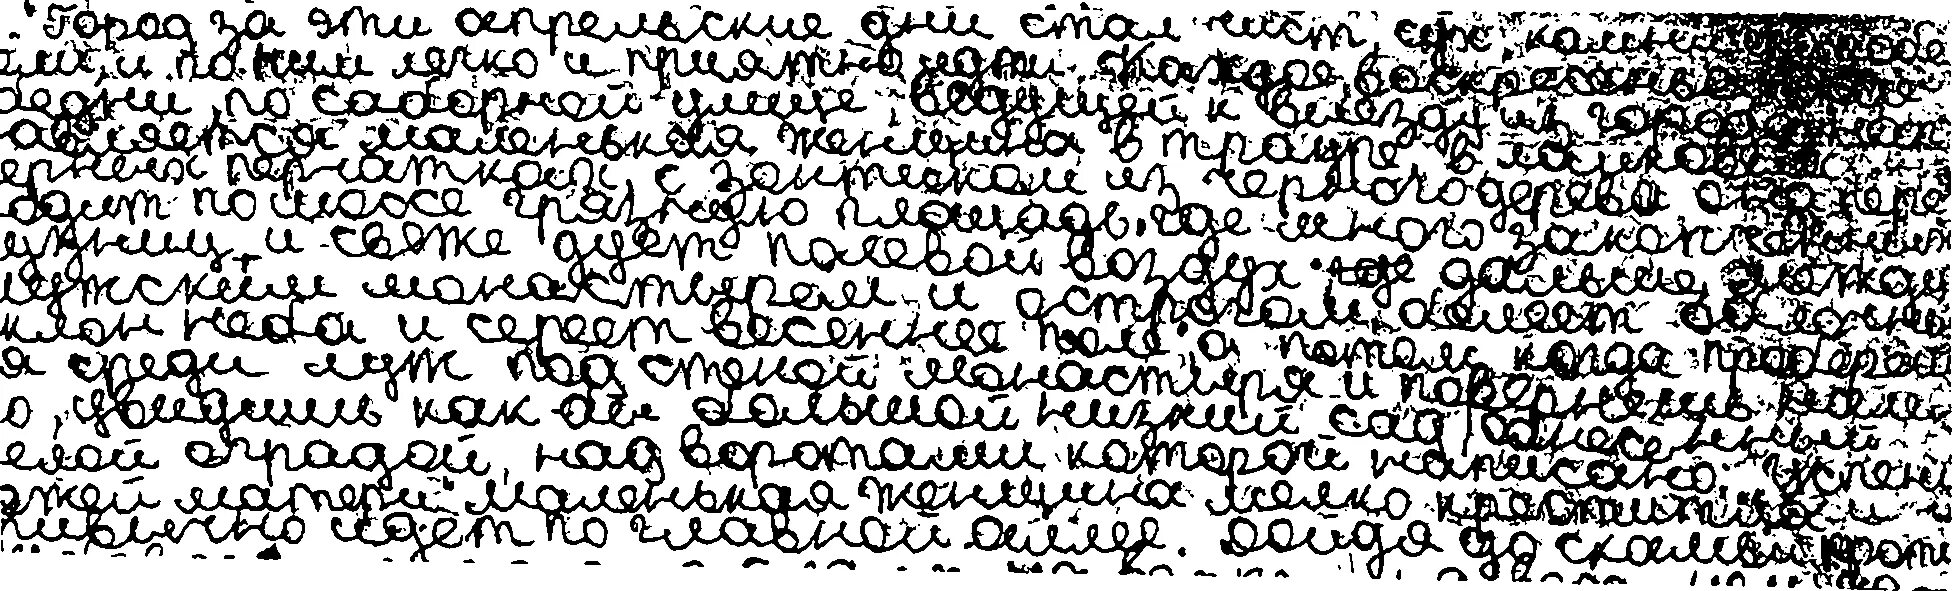 Город за эти апрельские дни стал чист, сух, камни его побе
ли, и по ним легко и приятно идти. Каждое воскресенье после
бедни, по соборной улице, ведущей к выезду из города, нап
авляется маленькая женщина в трауре, в лайковых
ерных перчатках, с зонтиком из черного дерева. Она пере
одит по шоссе грязную площадь, где много закопченных
узниц, и свежо дует полевой воздух, где дальше, между
мужским монастырем и острогом, белеет облачный
клон неба и сереет весеннее поле, а потом, когда пробере
я среди луж под стеной монастыря и повернешь нале
о, увидишь как бы большой низкий сад, обнесенный
елой оградой, над воротами которой написано: Успени
ожей матери." Маленькая женщина мелко крестится и
ривычно идёт по главной аллее. Дойдя до скамьи проти